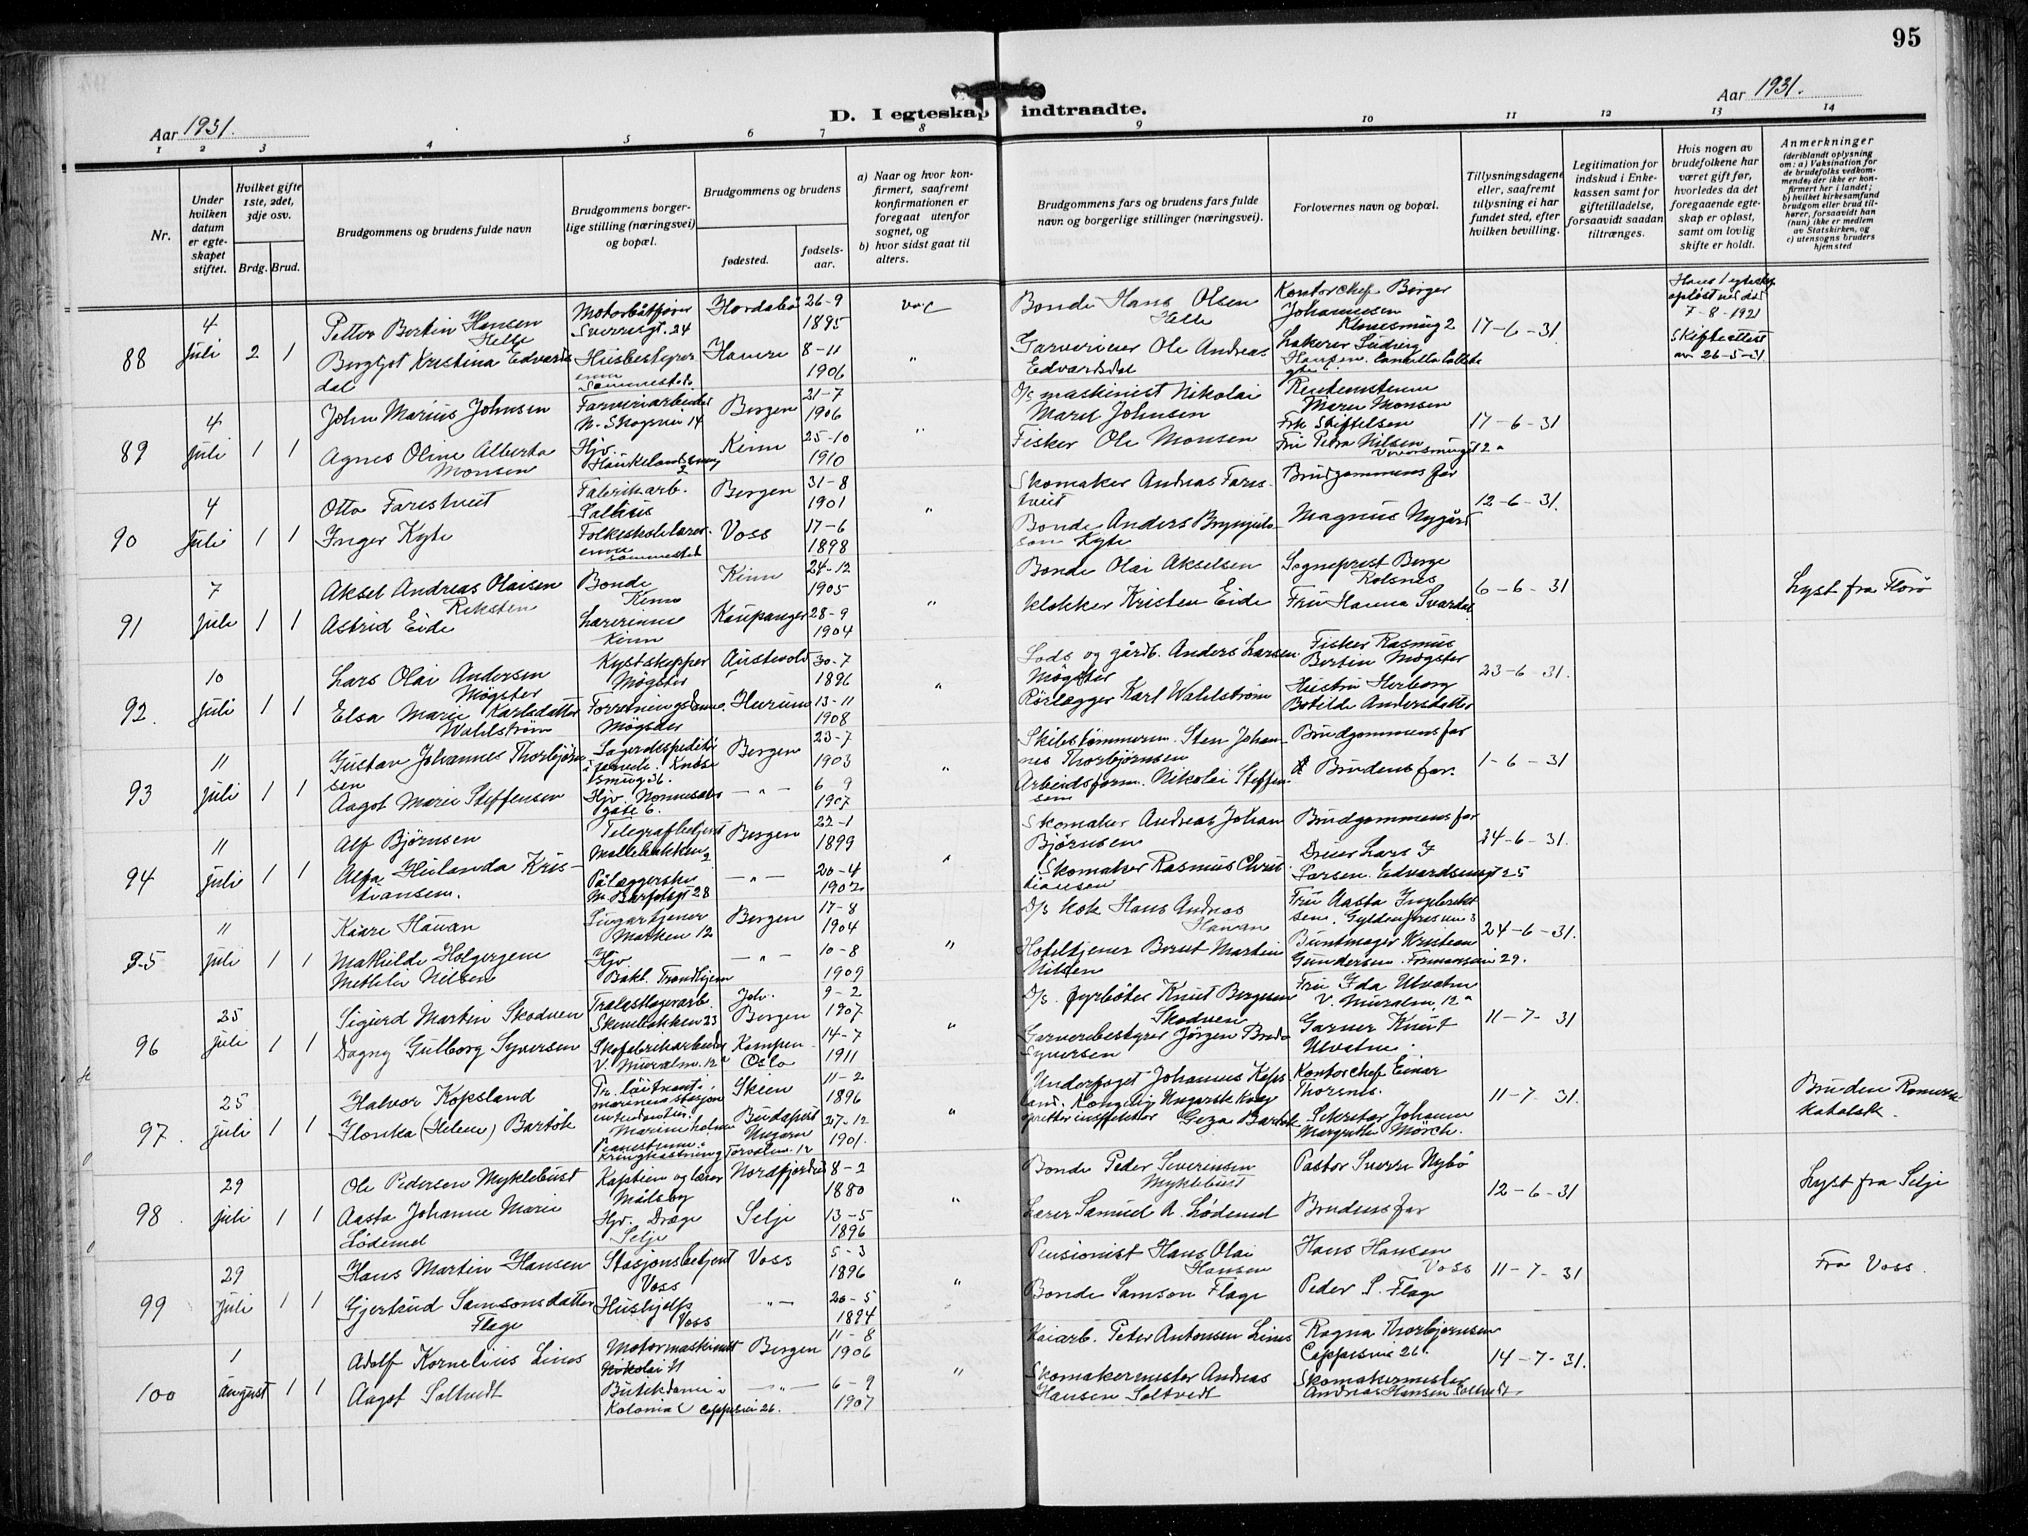 95
Aar 1931.
D. I egteskap indtraadte.
Aar 1931.
1 2 3 4 5 6 7 8 9 10 11 12 13 14
Nr.
Under hvilken datum er egte-skapet stiftet.
Hvilket gifte 1ste, 2det, 3dje osv.
Brdg. Brud.
Brudgommens og brudens fulde navn
Brudgommens borger-lige stilling (næringsvei) og bopæl.
Brudgommens og brudens
fødested.
fødsels-aar.
a) Naar og hvor kon-firmert, saafremt konfirmationen er foregaat utenfor sognet, og
b) hvor sidst gaat til alters.
Brudgommens fars og brudens fars fulde navn og borgerlige stillinger (næringsvei).
Forlovernes navn og bopæl.
Tillysningsdagene eller, saafremt tillysning ei har fundet sted, efter hvilken bevilling.
Legitimation for indskud i Enke-kassen samt for giftetilladelse, forsaavidt saadan tiltrænges.
Hvis nogen av brudefolkene har været gift før, hvorledes da det foregaaende egte-skap er opløst, samt om lovlig skifte er holdt.
Anmerkninger
(deriblandt oplysning om: a) Vaksination for de brudefolks vedkom-mende, der ikke er kon-firmert her i landet; b) hvilket kirkesamfund brudgom eller brud til-hører, forsaavidt han (hun) ikke er medlem av Statskirken, og c) utensogns bruders hjemsted
88 4 juli 2 1
Petter Bertin Hansen Helle
Motorbåtfører Sverresgt. 24
Hordabø 26-9 1895
vac
Bonde Hans Olsen Helle
Kontorchef Birger Johannesen
17-6-31
7-8-1921
Skifteattest av 26-5-31
Bergljot Kristina Edvardsdal
Husbestyrerinne sammesteds
8-11 1906
Garverieier Ole Andreas Edvardsdal
Lakerer Ludvig Hansen
89 4 juli 1 1
John Marius Johnsen
Farveriarbeider N. Skogvei 14
Bergen 21-7 1906
D/s maskinist Nikolai Marit Johnsen
17-6-31
Agnes Oline Alberta Monsen
Hjv. Haukelandsvei
Kinn 25-10 1910
Fisker Ole Monsen
Fru Petra Nilsen
90 4 juli 1 1
Otto Farestveit
Fabrikarb.
Bergen 31-8 1901
Skomaker Andreas Farestveit
Brudgommens far
12-6-31.
Inger Kyte
Folkeskolelærerinne sammesteds
Voss 17-6 1898
Bonde Anders Brynjulfson Kyte
Magnus Nygård
91 7 juli 1 1
Aksel Andreas Olaisen Reksten
Bonde Kinn
Kinn 24-12 1905
Bonde Olai Akselsen
Sogneprest Berge Rolsnes
6-6-31
Lyst fra Florø
Astrid Eide
Lærerinne Kinn
Kaupanger 28-9 1904
Klokker Kristen Eide
Fru Hanna Svardal
92. 10 juli 1 1
Lars Olai Andersen Møgster
Kystskipper Møgster
Austevold 30-7 1896
Lods og gårdb. Anders Larsen Møgster
Fisker Rasmus Bertin Møgster
23-6-31.
Elsa Marie Karlsdatter Wahlstrøm
Forretningsdame Møgster
Hurum 13-11 1908
Rørlegger Karl Wahlstrøm
Hustru Herborg Botilde Andersdatter
93 11 juli 1 1
Gustav Johannes Thorbjørnsen
Bergen 23-7 1903
Skibstømmerm. Sten Johannes Thorbjørnsen
Brudgommens far
1-6-31
Aagot Marie Steffensen
Hjv. Nonnesætergate 6.
— „ — 6 9 1907
Arbeidsform. Nikolai Steffensen
Brudens far.
94 11 juli 1 1
Alf Bjørnsen
Telegrafbetjent Møllebakken 2
Bergen 22-1 1899
Skomaker Andreas Johan Bjørnsen
Brudgommens far
24-6-31.
Alfa Hulanda Kristiansen.
Pålæggerske
— „ — 20-4 1902
Skomaker Rasmus Christiansen
95 11 juli 1 1
Kaare Hauan
Marken 12
Bergen 17-8 1904
D/s kok Hans Andreas Hauan
Fru Aasta Ingebriktsen.
24-6-31.
Mathilde Holgergine Nilsen
Hjv
— „ — 10-8 1909
Hotelltjener Bernt Martin Nilsen
Buntmager Kristian Gundersen
96 25 juli 1 1
Sigurd Martin Skodven
Trælastlagerarb. Skivebakken 23
Joh. Bergen 9-2 1907
D/s. fyrbøter Knut Bergesen Skodven
Fru Ida Ulvatn V. Muralm. 12a
11-7-31
Dagny Gulborg Syversen
Skofabrikarbeider V. Muralm. 12a
Kampen Oslo 14-7 1911
Garveribestyrer Jørgen Syversen
Garver Knut Ulvatn.
97. 25 juli 1 1
Halvor Kopsland
Pr. løitnant i marinen
Skien 11-2 1896
Underfoget Johannes Kopsland.
Kontorchef Einar Thorenes.
11-7-31.
Bruden Romersk katolsk.
Ilonka (Helene) Bartók
Pianistinne
Budapest Ungarn 27-12 1901.
Geza Bartók
Sekretær Johanne Margrethe Mørch.
98. 29 juli 1 1
Ole Pedersen Myklebust
Kaptein og lærer Målsby
Nordfjordeid 8-2 1880
Bonde Peder Severinsen Myklebust
Pastor Sverre Nybø
12-6-31
Lyst fra Selje
Aasta Johanne Marie Lødemel
Hjv. Drage Selje
Selje 13-5 1896
Lærer Samuel A. Lødemel
Brudens far
99 29 juli 1 1
Hans Martin Hansen
Stasjonsbetjent Voss
Voss 5-3 1896
Pensionist Hans Olai Hansen
Hans Hansen Voss
11-7-31
Fra Voss.
Gjertrud Samsonsdatter Flage
Hushjelp Voss
— „ — 20-5 1894
Bonde Samson Flage
Peder S. Flage
100 1 august 1 1
Adolf Kornelius Lines
Motormaskinist
Bergen 11-8 1906
Kaiarb. Peter Antonsen Lines
Ragna Thorbjørnsen
14-7-31.
Aagot Soltvedt
Butikdame i Kolonial Cappesvei 26.
— „ — 6-9 1907
Skomakermester Andreas Hansen Soltvedt
Skomakermester Andreas Hansen Soltvedt.